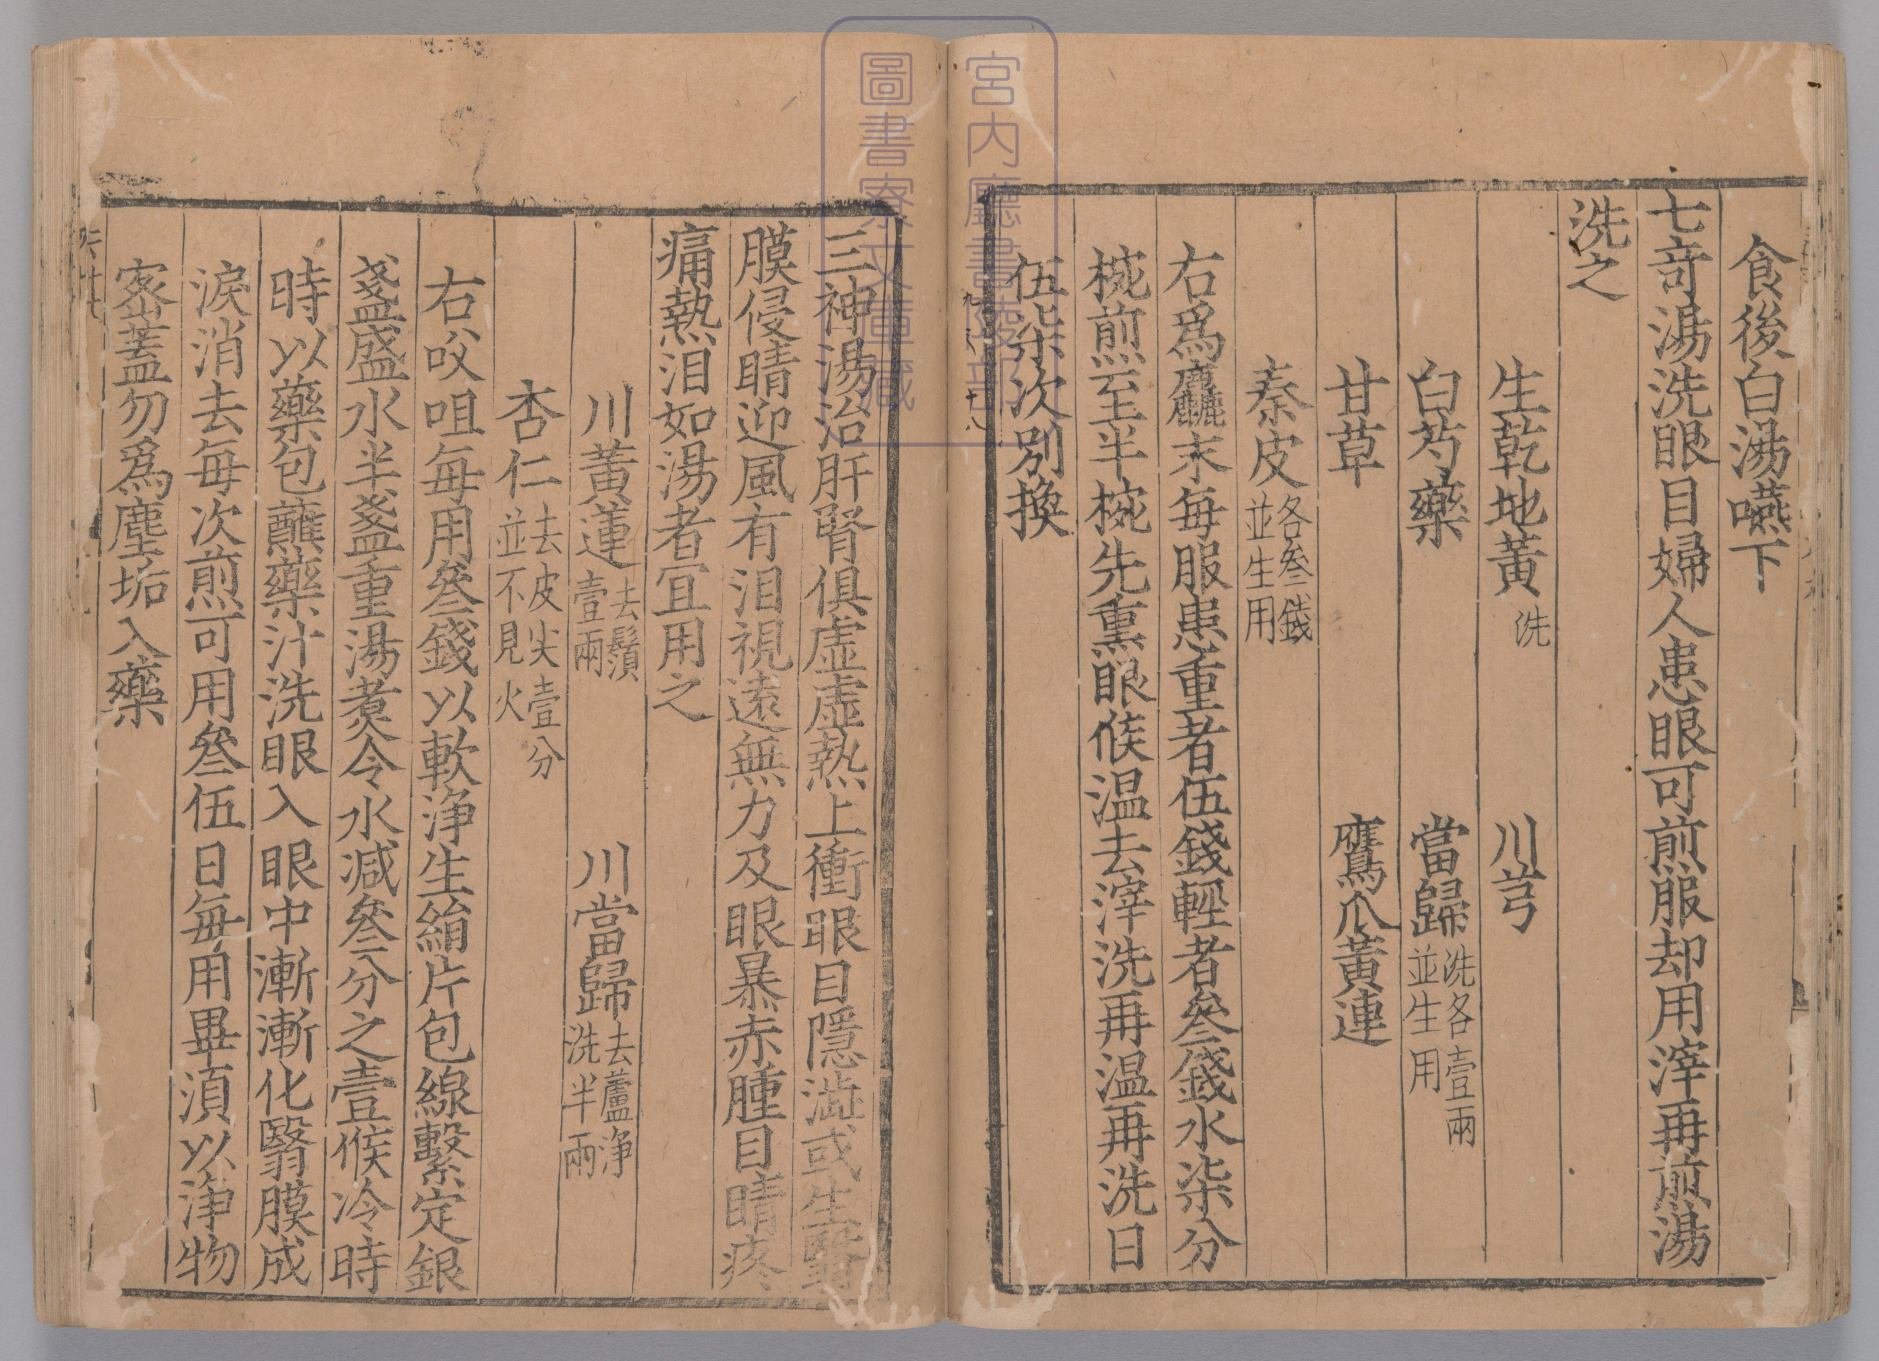 食後白湯嚥下
七竒湯洗眼目婦人患眼可煎服却用滓再煎湯
洗之
生乾地黃洗 川芎
白芍藥 當歸洗各壹兩並生用
甘草 鷹爪黃連
秦皮各叁錢並生用
右爲麤末每服患重者伍錢輕者叁錢水柒分
椀煎至半椀先熏眼候温去滓洗再温再洗日
伍柒次别換
三神湯治肝腎俱虛虛熱上衝眼目隱澁或生翳
膜侵睛迎風有泪視遠無力及眼暴赤腫目睛疼
痛熱泪如湯者宜用之
川黃蓮去鬚壹兩 川當歸去蘆淨洗半兩
杏仁去皮尖壹分並不見火
右㕮咀每用叁錢以軟淨生絹片包線繫定銀
盞盛水半盞重湯煑令水減叁分之壹候冷時
時以藥包蘸藥汁洗眼入眼中漸漸化翳膜成
淚消去每次煎可用叁伍日每用畢湏以淨物
宻蓋勿爲塵垢入藥
宮内廳書陵部
圖書寮文庫藏